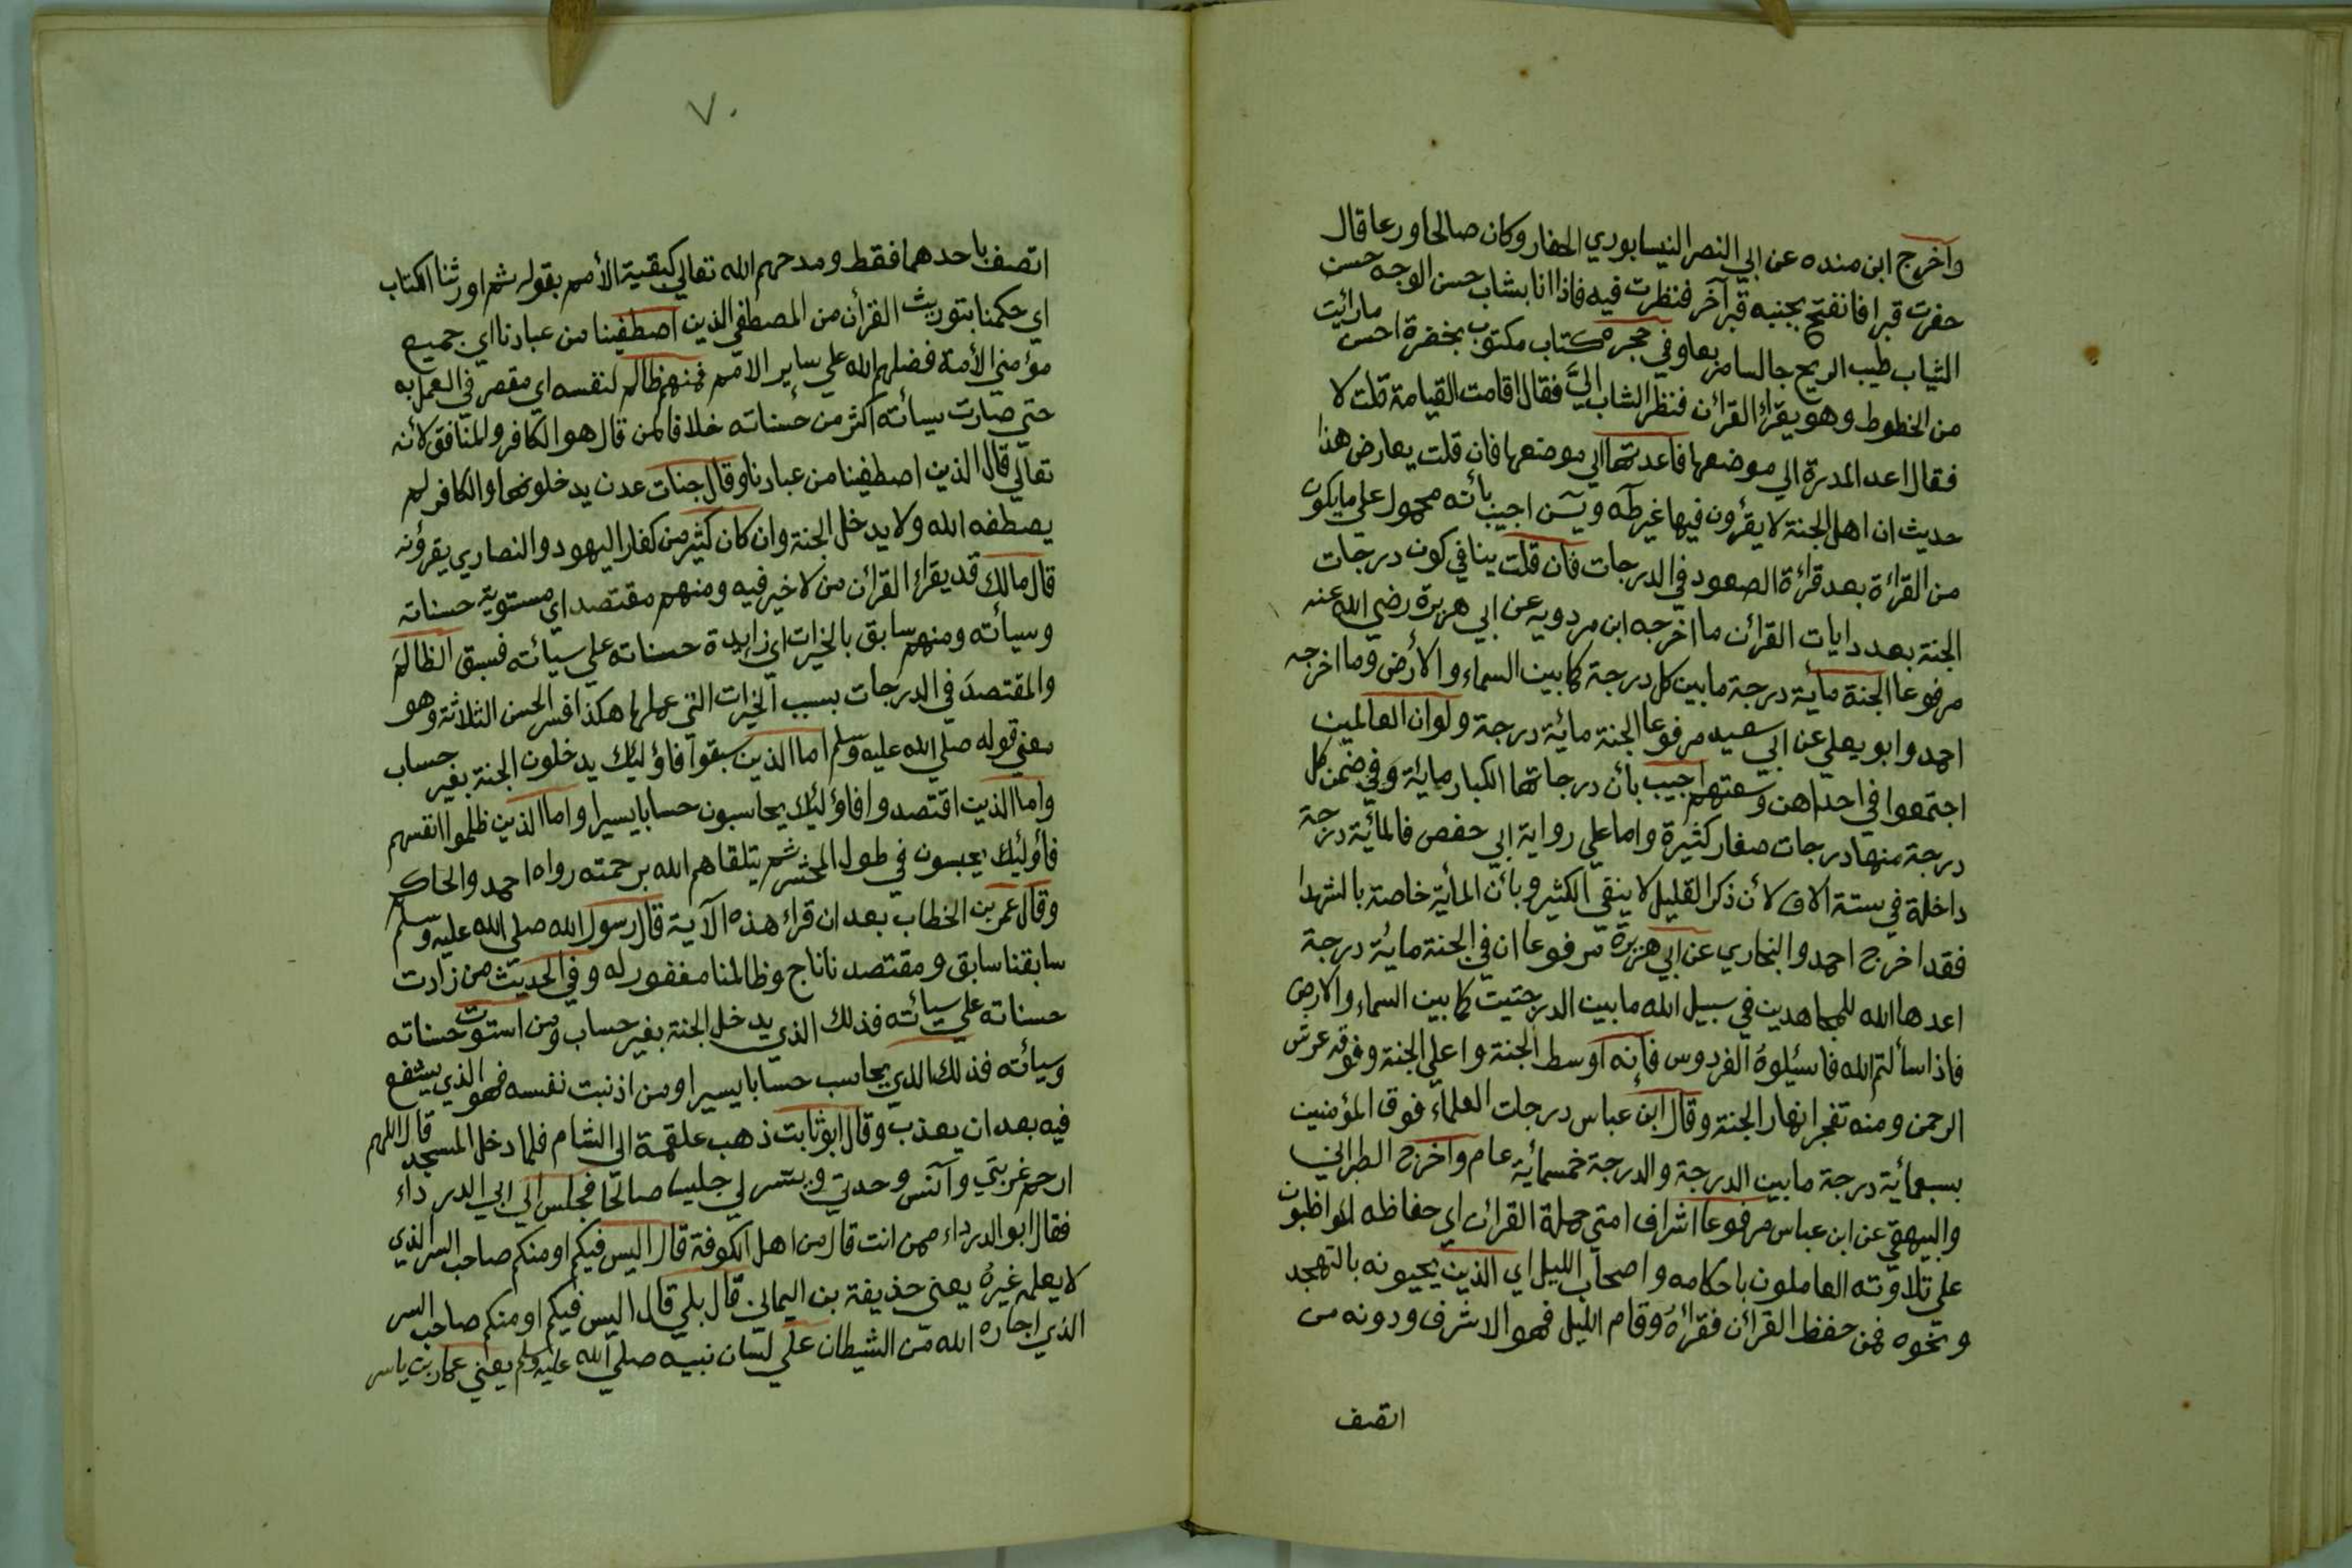 واخرج ابن منده عن ابي النصر النيسابوري الحفار وكان صالحا ورعا قال
حفرت قبرا فانفتح بجنبه قبر آخر فنظرت فيه فاذا انا بشاب حسن الوجه حسن
الثياب طيب الريح جالسا مربعا وفي حجره كتاب مكتوب بخضرة احسن ما رائيت
من الخطوط وهو يقرؤ القرائن فنظر الشاب اليَّ فقال اقامت القيامة قلت لا
فقال اعد المدرة الي موضعها فاعدتها الي موضعها فان قلت يعارض هذا
حديث ان اهل الجنة لا يقرؤن فيها غير طٓه ويٓسٓن اجيب بأنه محمول علي ما يكون
من القرائة بعد قرائة الصعود في الدرجات فان قلت ينافي كون درجات
الجنة بعدد ايات القرائن ما اخرجه ابن مردويه عن ابي هريرة رضي الله عنه
مرفوعا الجنة مأية درجة ما بين كل درجة كما بين السماء والأرض وما اخرجه
احمد وابو يعلي عن ابي سعيد مرفوعا الجنة مائية درجة ولوان العالمين
اجتمعوا في احداهن وسعتهم اجيب بأن درجاتها الكبار مايئة وفي ضمن كل
درجة منها درجات صغار كثيرة واما علي رواية ابي حفص فالمائية درجة
داخلة في ستة الاف لأن ذكر القليل لا ينفي الكثير وبأن المأية خاصة بالشهدا
فقد اخرج احمد والبخاري عن ابي هريرة مرفوعا ان في الجنة مايئة درجة
اعدها الله للمجاهدين في سبيل الله ما بين الدرجتين كما بين السماء والارض
فاذا سألتم الله فاسئيلوهُ الفردوس فإنه اوسط الجنة واعلي الجنة وفوقه عرش
الرحمن ومنه تفجر انهار الجنة وقال ابن عباس درجات العلماء فوق المؤمنين
بسبعمائية درجة ما بين الدرجة والدرجة خمسمائية عام واخرج الطبراني
والبيهقي عن ابن عباس مرفوعا اشراف امتي حملة القرائن اي حفاظه المواظبون
علي تلاوته العاملون باحكامه واصحاب الليل اي الذين يحيونه بالتهجد
ونحوه فمن حفظ القرائن فقرأهُ وقام الليل فهو الاشرف ودونه من
اتصف
٧٠
اتصف باحدهما فقط ومدحهم الله تعالي كبقية الأمم بقوله ثم اورثنا الكتاب
اي حكمنا بتوريث القرأن من المصطفي الذين اصطفينا من عبادنا اي جميع
مؤمني الأمة فضلهم الله علي ساير الامم فمنهم ظالم لنفسه اي مقصر في العمل به
حتي صارت سيأته اكثر من حسناته خلافا لمن قال هو الكافر والمنافق لأنه
تعالي قال الذين اصطفينا من عبادنا وقال جنات عدن يدخلونها والكافر لم
يصطفه الله ولا يدخل الجنة وان كان كثير من كفار اليهود والنصاري يقرؤنه
قال مالك قد يقراء القرائن من لا خير فيه ومنهم مقتصد اي مستوية حسناته
وسيأته ومنهم سابق بالخيرات اي زايدة حسناته علي سيائته فسبق الظالمَ
والمقتصدَ في الدرجات بسبب الخيرات التي عملها هكذا فسر الحسن الثلاثة وهو
معني قوله صلي الله عليه وسلم اما الذين سبقوا فاؤليك يدخلون الجنة بغير حساب
واما الذين اقتصدوا فاؤليك يحاسبون حسابا يسيرا واما الذين ظلموا انفسهم
فأوليك يحبسون في طول المحشر ثم يتلقاهم الله برحمته رواه احمد والحاكم
وقال عمر بن الخطاب بعد ان قراء هذه الآية قال رسول الله صلي الله عليه وسلم
سابقنا سابق ومقتصدنا ناج وظالمنا مغفور له وفي الحديث من زادت
حسناته علي سيأته فذلك الذي يدخل الجنة بغير حساب ومن استوت حسناته
وسيأته فذلك الذي يحاسب حسابا يسيرا ومن اذنبت نفسه فهو الذي يشفع
فيه بعد ان يعذب وقال ابو ثابت ذهب علقمة الي الشام فلما دخل المسجد قال اللهم
ارحم غربتي وآنس وحدتي ويسر لي جليسا صالحا فجلس الي ابي الدرداء
فقال ابو الدرداء ممن انت قال من اهل الكوفة قال اليس فيكم او منكم صاحب السر الذي
لا يعلمه غيرهُ يعني حذيفة بن اليماني قال بلي قال اليس فيكم او منكم صاحب السر
الذي اجاره الله من الشيطان علي لسان نبيه صلي الله عليه وسلم يعني عمار بن ياسر